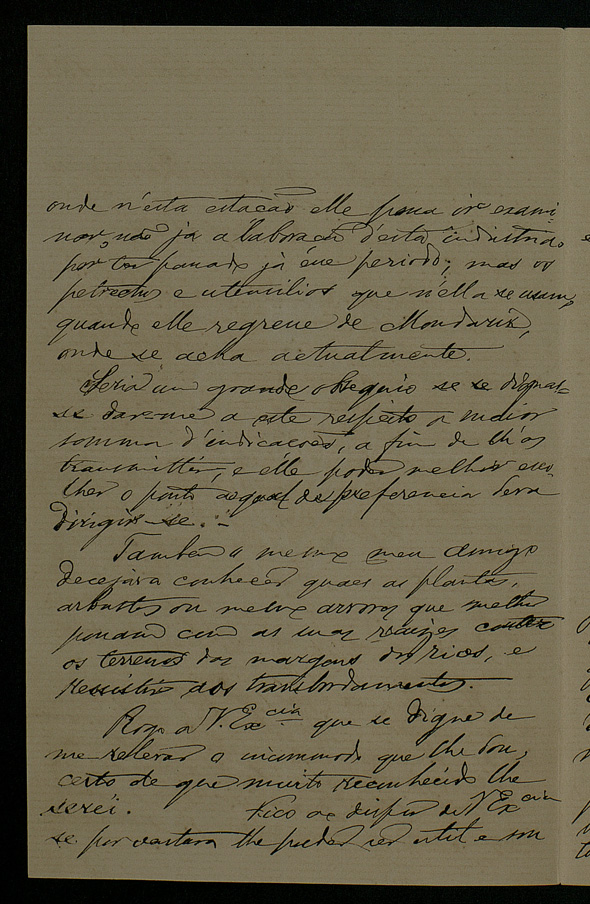 onde n'esta estação elle possa ir exami-
nar, não já a laboração d'esta industria
por ter passado já esse periodo, mas os
petrechos e utensilios que n'ella se usam,
quando elle regresse de Mondariz,
onde se acha actualmente.
Seria um grande obsequio se se dignas-
se dar-me a este respeito a maior
somma d'indicacões, a fim de lh'as
transmittir, e elle poder melhor esco
lher o ponto ao qual de preferencia será
dirigir-se.-
Tambem o mesmo meu amigo
decejava conhecer quaes as plantas,
arbustos ou mesmo arvores que melhor
possam com as suas raizes conter
os terrenos das margens dos rios, e
ressistir aos transbordamentos.
Rogo a V. Excia que se digne de
me relevar o incommodo que lhe dou,
certo de que muito reconhecido lhe
serei. Fico ao dispor de V Excia
se por ventura lhe poder ser util e sou